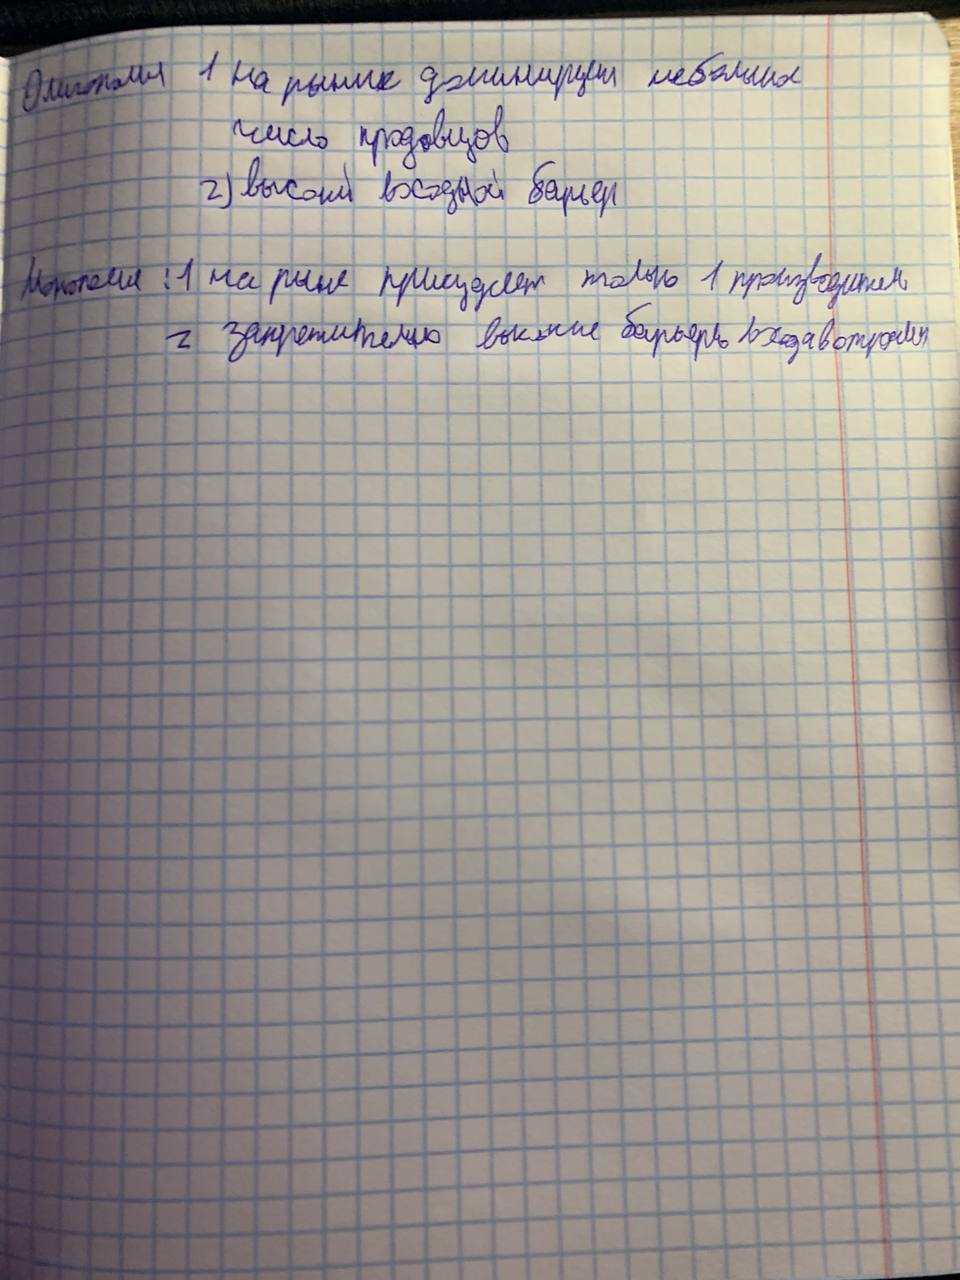 Олигополия 1 на рынке доминирует небольшое
число продовцов
2) высокий входной барьер
Монополия : 1 на рынке присудсвет только 1 производитель
2 запретительно высокие барьеры входа в отрасли